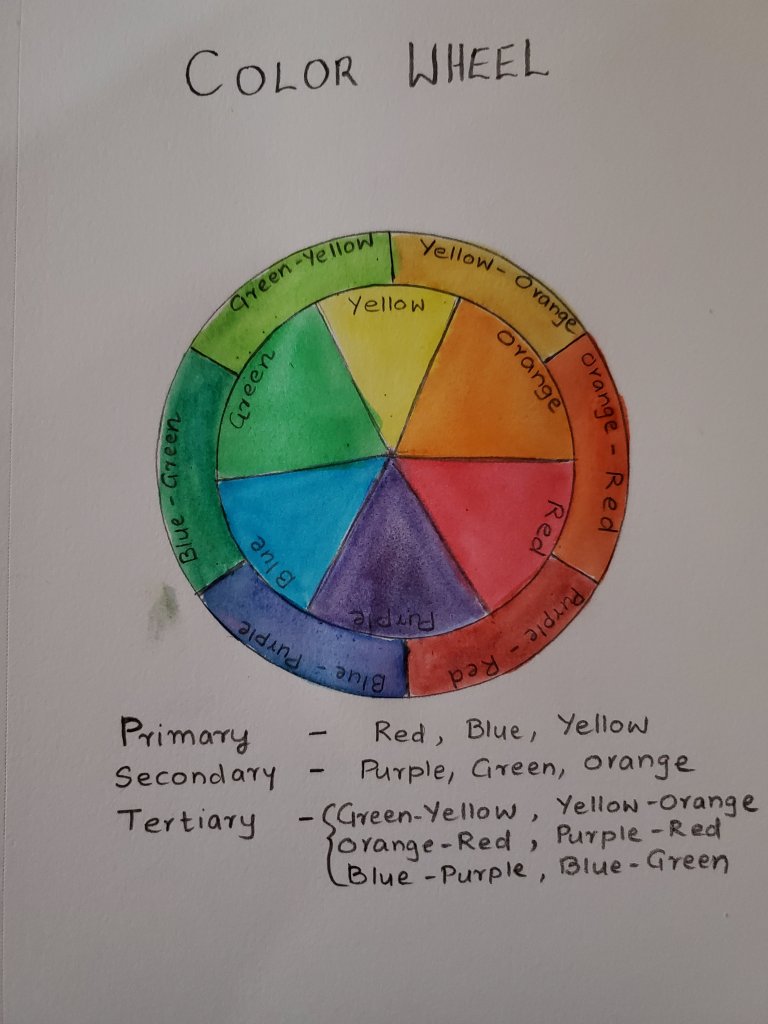 COLOR WHEEL
Green-Yellow
Yellow-Orange
Yellow
Green
Orange
Orange - Red
Blue - Green
Blue
Red
Purple
Blue - Purple
Purple - Red
Primary - Red, Blue, Yellow
Secondary - Purple, Green, Orange
Tertiary - { Green-Yellow, Yellow-Orange
Orange-Red, Purple-Red
Blue-Purple, Blue-Green